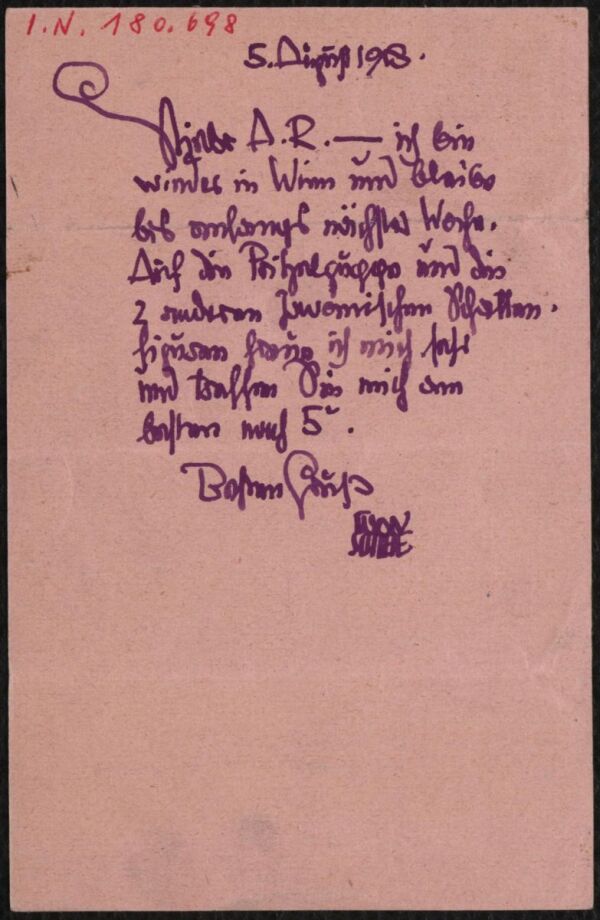 I.N. 180.698
5. August 1918.
Lieber A.R. — ich bin
wieder in Wien und bleibe
bis anfangs nächster Woche.
Auf die und die
2 anderen javanischen Schatten.
figuren freue ich mich sehr
und treffen Sie mich am
besten nach 5ʰ.
Besten Gruß
EGON
SCHIELE